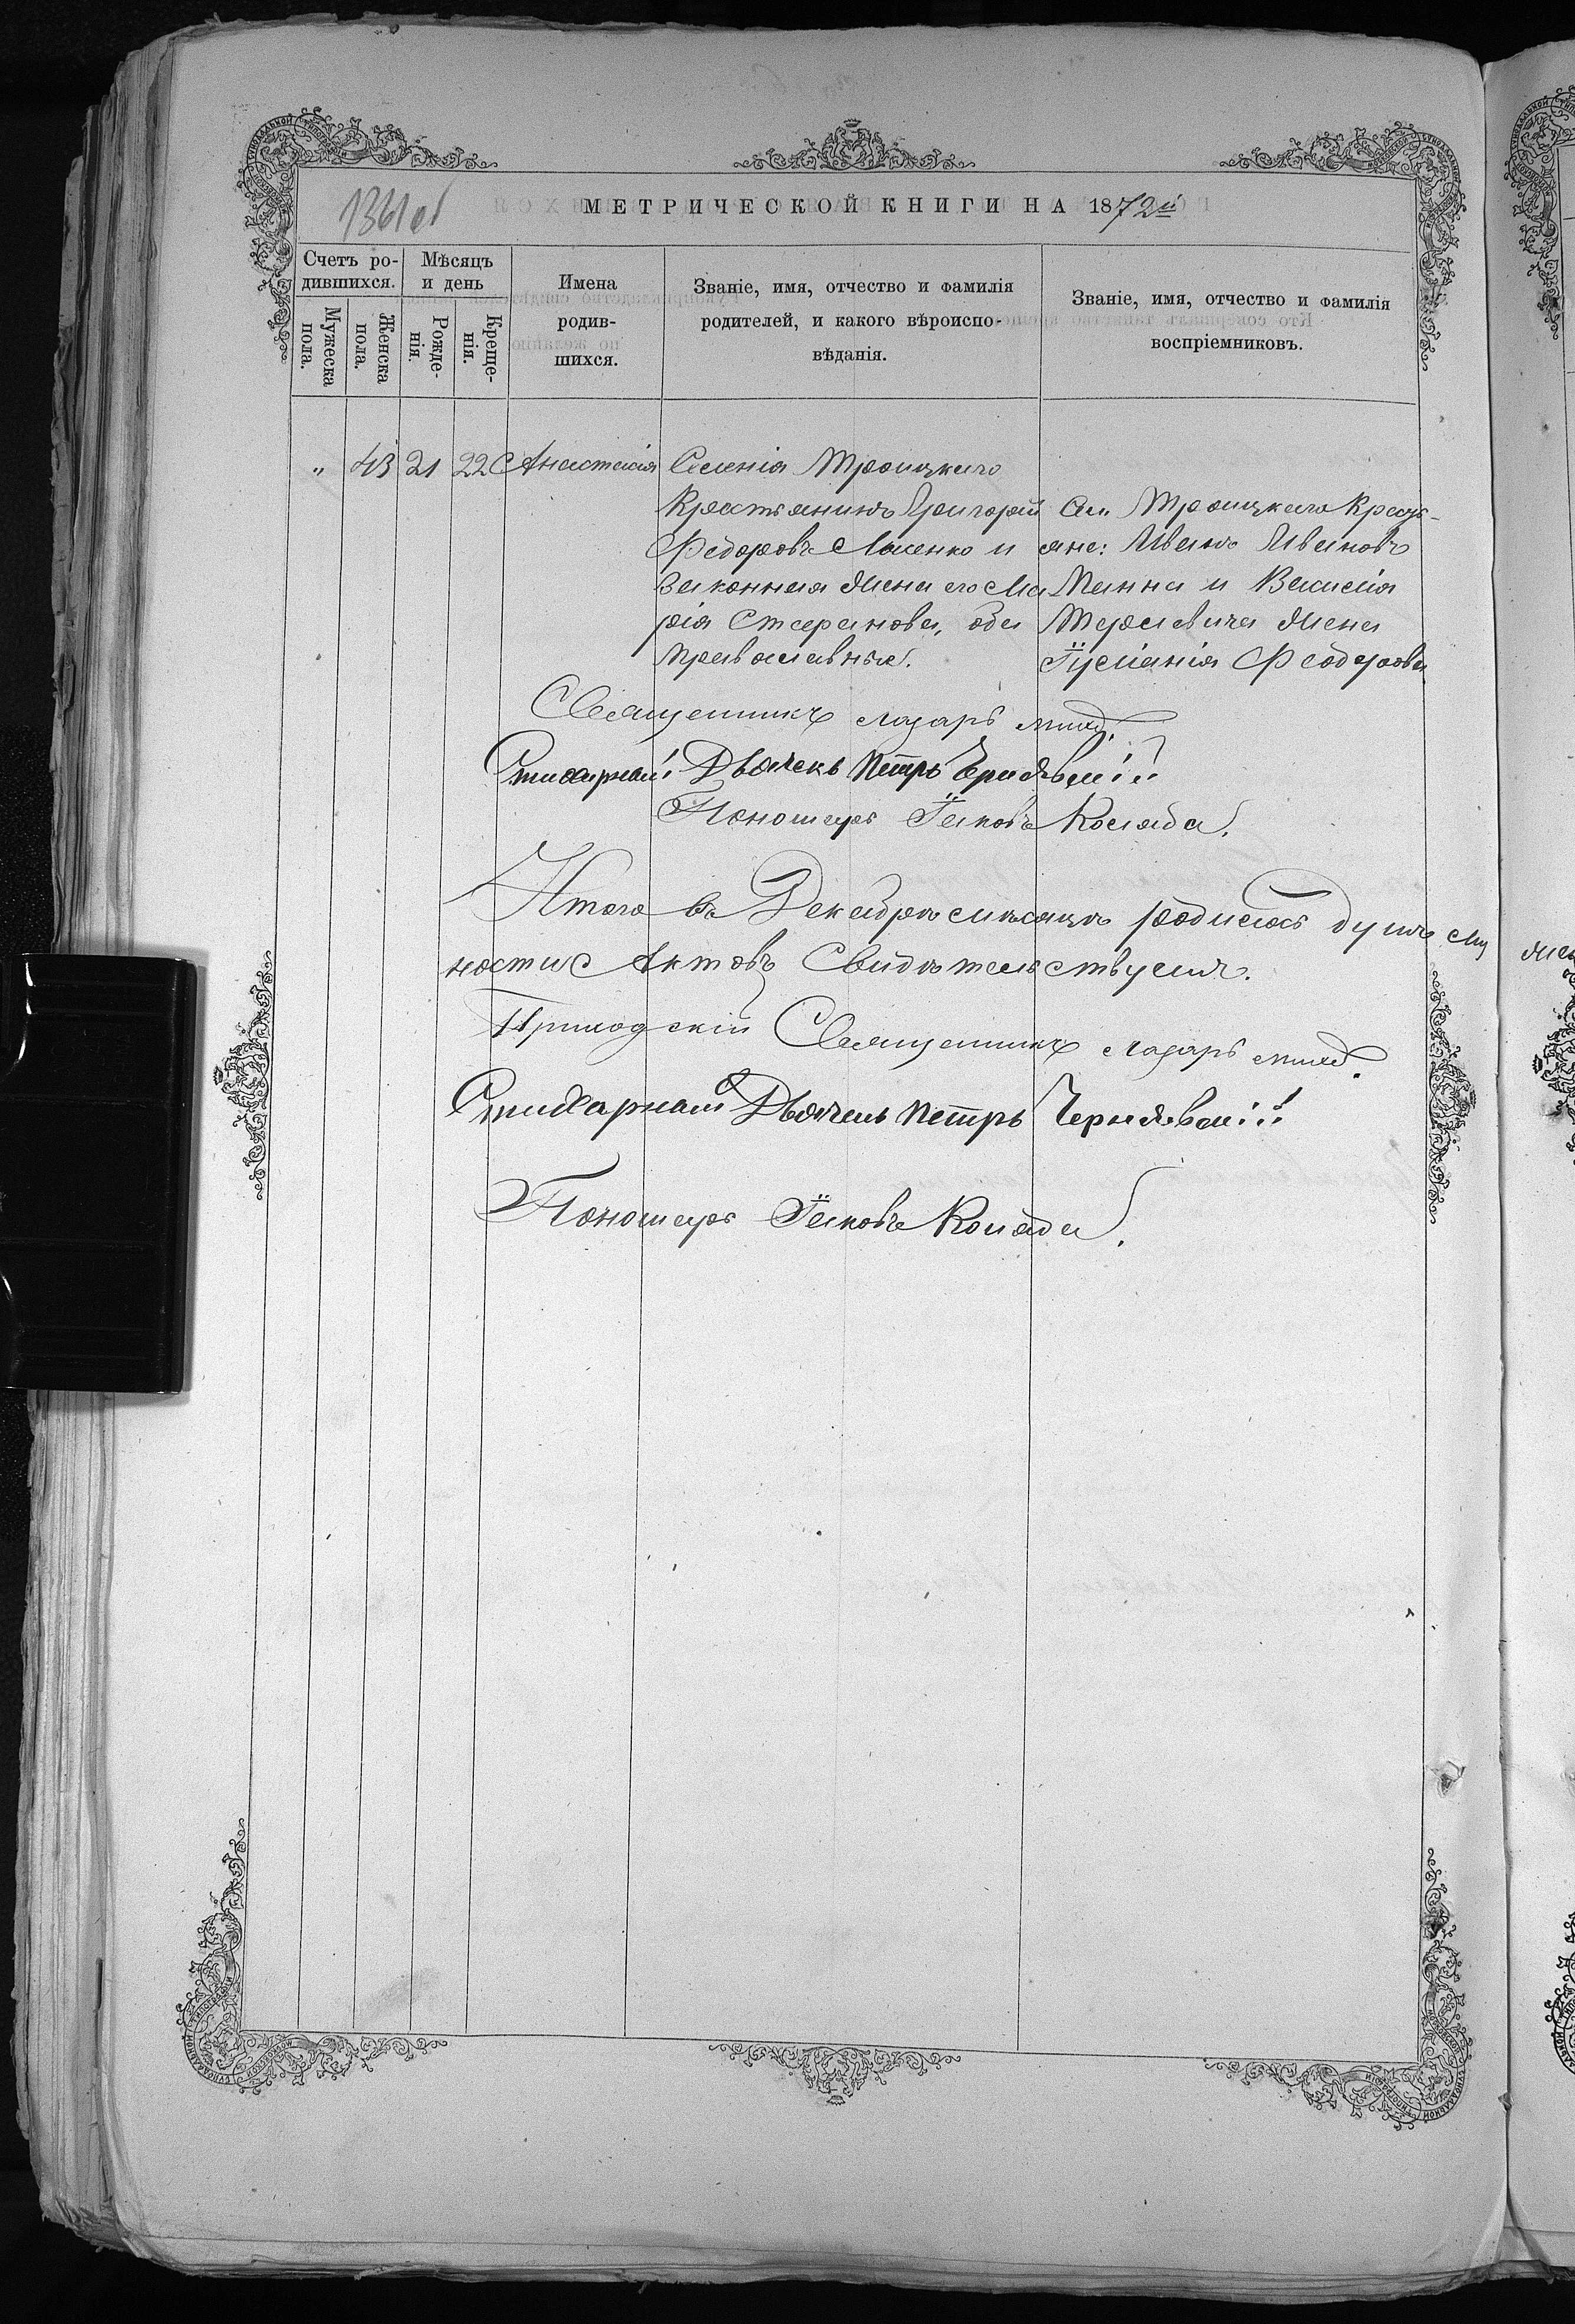 1361 об
МЕТРИЧЕСКОЙ КНИГИ НА 1872й
Счетъ ро-
дившихся.
Мужеска
пола.
Женска
пола.
Мѣсяцъ
и день
Рожде-
нія.
Креще-
нія.
Имена
родив-
шихся.
Званіе, имя, отчество и фамилія
родителей, и какого вѣроиспо-
вѣданія.
Званіе, имя, отчество и фамилія
воспріемниковъ.
" 43 21 22 Анастасія
Селенія Троицкаго
Крестьянинъ Григорій
Федоровъ и
законная жена его Ма
рія Стефанова, оба
православные.
Сел. Троицкаго Кресть-
яне: Иванъ Ивановъ
Манна и Василія
жена
Іуліанія Феодорова
Священникъ Лазарь
Стихарный Дьячекъ Петръ Чернявский
Пономарь Іаковъ Коляда.
Итого въ Декабрѣ мѣсяцѣ родилось душъ му
ность Актовъ Свидѣтельствуемъ.
Приходскій Священникъ Лазарь
Стихарный Дьячекъ Петръ Чернявский
Пономарь Іаковъ Коляда.